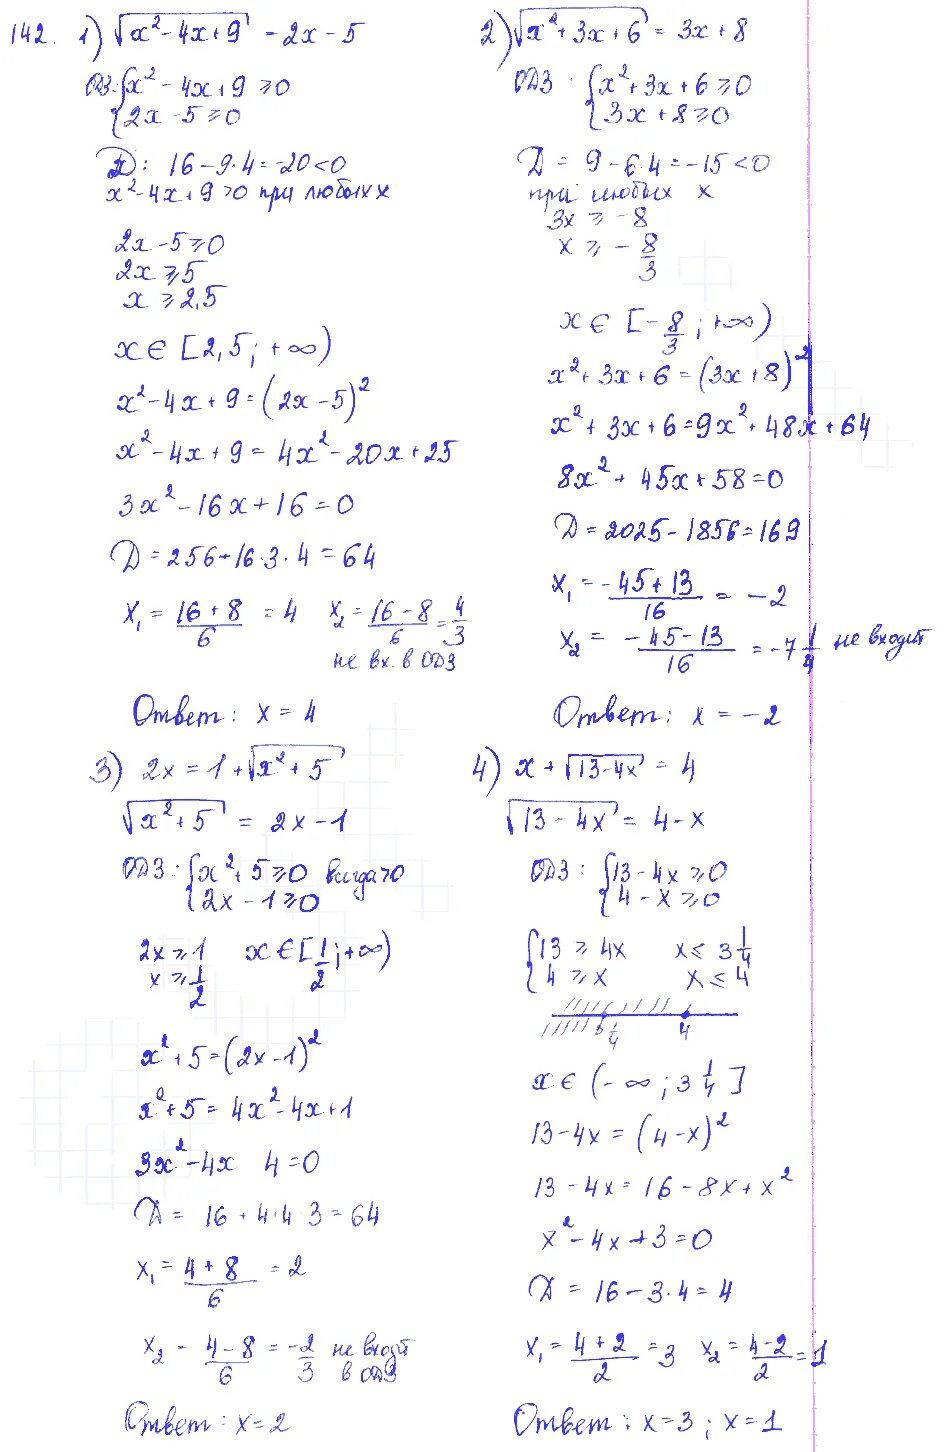 142. 1) √(x² - 4x + 9) = 2x - 5
ОДЗ: { x² - 4x + 9 ≥ 0
2x - 5 ≥ 0
D: 16 - 9·4 = -20 < 0
x² - 4x + 9 > 0 при любых x
2x - 5 ≥ 0
2x ≥ 5
x ≥ 2,5
x ∈ [2,5; +∞)
x² - 4x + 9 = (2x - 5)²
x² - 4x + 9 = 4x² - 20x + 25
3x² - 16x + 16 = 0
D = 256 - 16·3·4 = 64
x₁ = (16 + 8)/6 = 4   x₂ = (16 - 8)/6 = 4/3
не вх. в ОДЗ
Ответ: x = 4
2) √(x² + 3x + 6) = 3x + 8
ОДЗ: { x² + 3x + 6 ≥ 0
3x + 8 ≥ 0
D = 9 - 6·4 = -15 < 0
при любых x
3x ≥ -8
x ≥ -8/3
x ∈ [-8/3; +∞)
x² + 3x + 6 = (3x + 8)²
x² + 3x + 6 = 9x² + 48x + 64
8x² + 45x + 58 = 0
D = 2025 - 1856 = 169
x₁ = (-45 + 13)/16 = -2
x₂ = (-45 - 13)/16 = -7 1/4 не входит
Ответ: x = -2
3) 2x = 1 + √(x² + 5)
√(x² + 5) = 2x - 1
ОДЗ: { x² + 5 ≥ 0 всегда > 0
2x - 1 ≥ 0
2x ≥ 1   x ∈ [1/2; +∞)
x ≥ 1/2
x² + 5 = (2x - 1)²
x² + 5 = 4x² - 4x + 1
3x² - 4x 4 = 0
D = 16 + 4·4·3 = 64
x₁ = (4 + 8)/6 = 2
x₂ - (4 - 8)/6 = -2/3 не входит
в ОДЗ
Ответ: x = 2
4) x + √(13 - 4x) = 4
√(13 - 4x) = 4 - x
ОДЗ: { 13 - 4x ≥ 0
4 - x ≥ 0
{ 13 ≥ 4x   x ≤ 3 1/4
4 ≥ x   x ≤ 4
3 1/4   4
x ∈ (-∞; 3 1/4]
13 - 4x = (4 - x)²
13 - 4x = 16 - 8x + x²
x² - 4x + 3 = 0
D = 16 - 3·4 = 4
x₁ = (4 + 2)/2 = 3   x₂ = (4 - 2)/2 = 1
Ответ: x = 3; x = 1